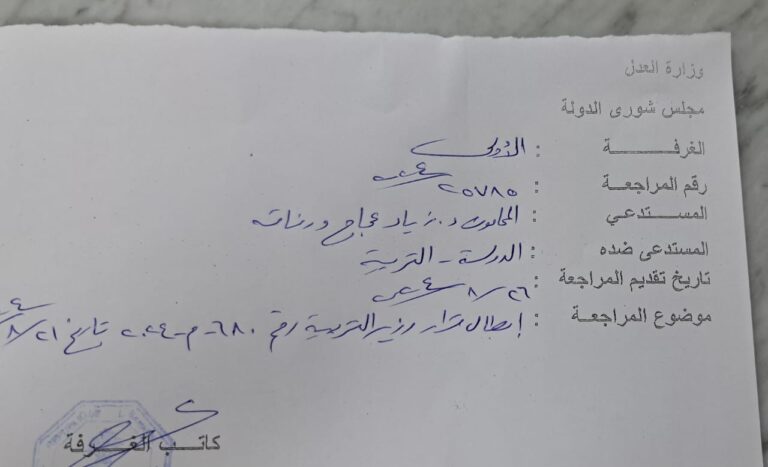 وزارة العدل
مجلس شورى الدولة
الغرفـــــــــة : الأولى
رقم المراجعة : ٢٥٧٨٥/٢٠٢٤
المســـتدعـي : المحامون د. زياد عجاج ورفاقه
المستدعى ضده : الدولة - التربية
تاريخ تقديم المراجعة : ٢٦/٨/٢٠٢٤
موضوع المراجعـة : إبطال قرار وزير التربية رقم ٦٨٠-م-٢٠٢٤ تاريخ ٢١/٨/
كاتـــب الغـــرفة